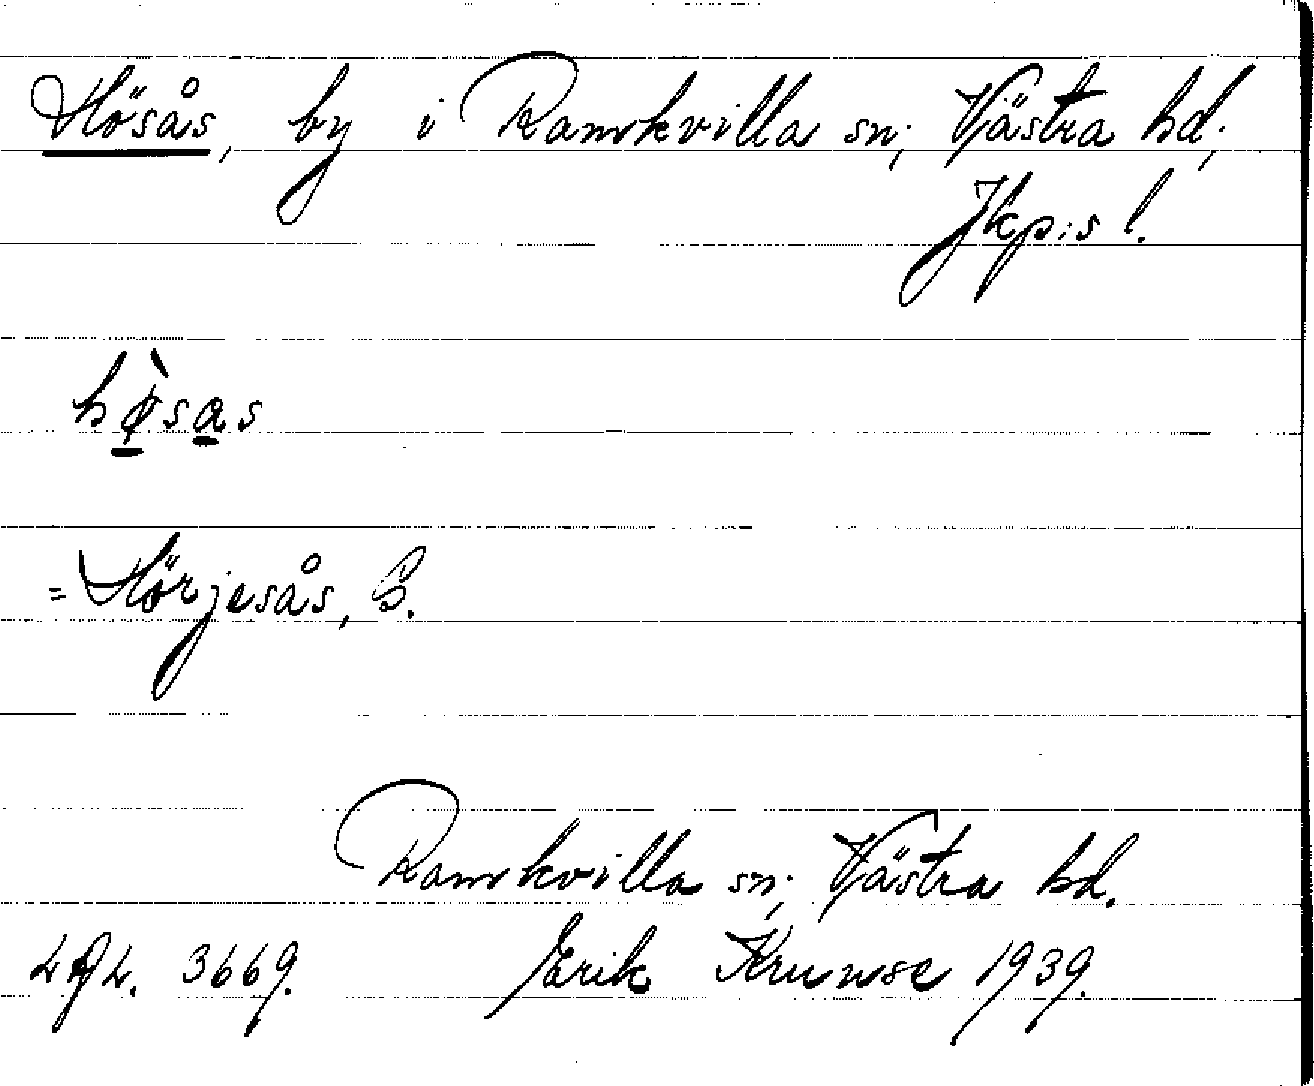 Hösås, by i Ramkvilla sn; Västra hd;
Jkp:s l.
hø̀sas
= Hörjesås, G.
Ramkvilla sn; Västra hd.
3669. Erik 1939.